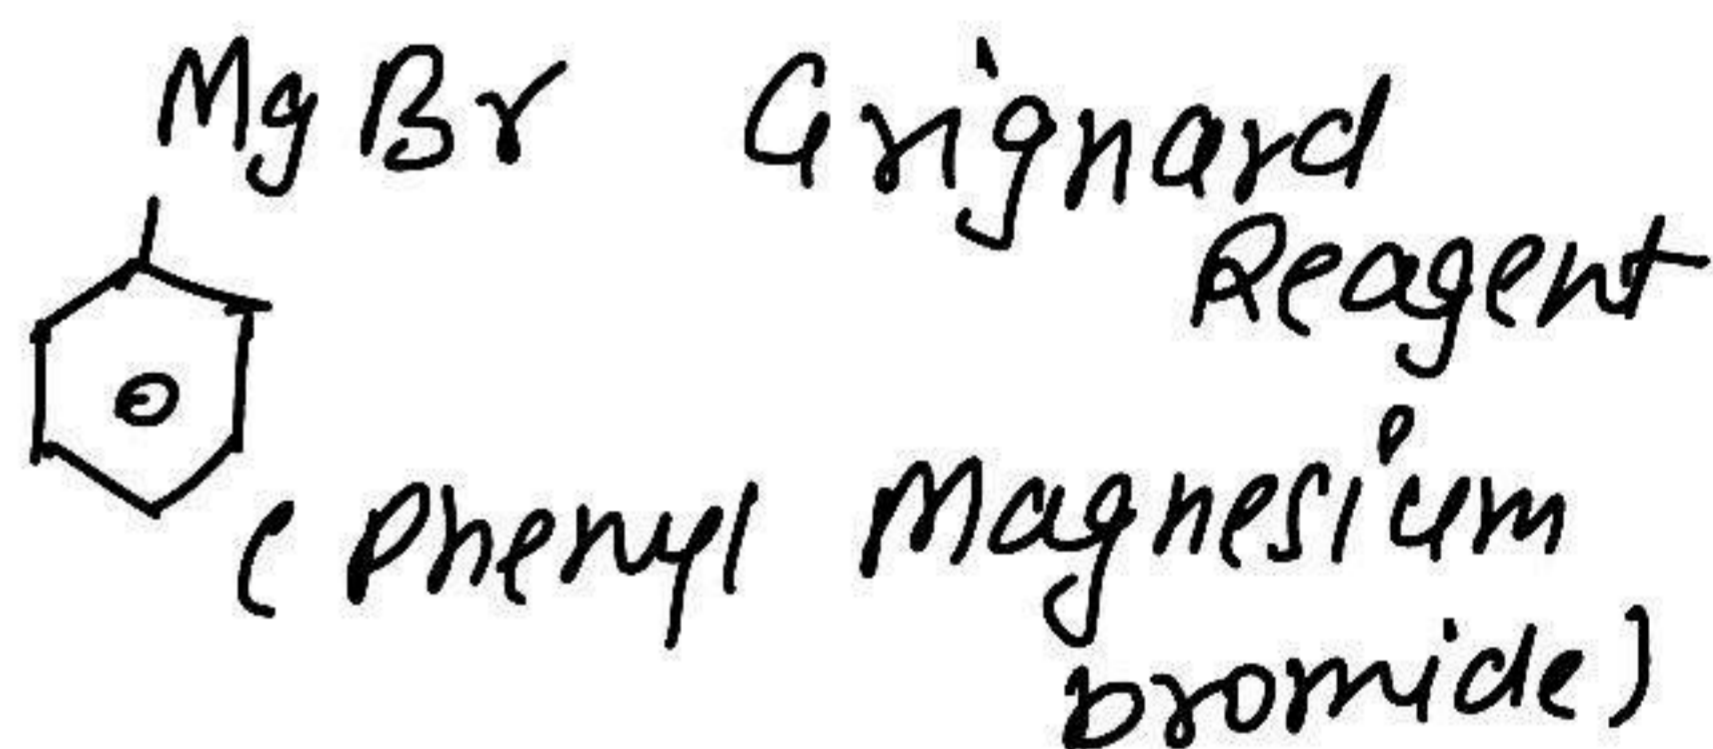 MgBr Grignard
Reagent
(Phenyl Magnesium
bromide)